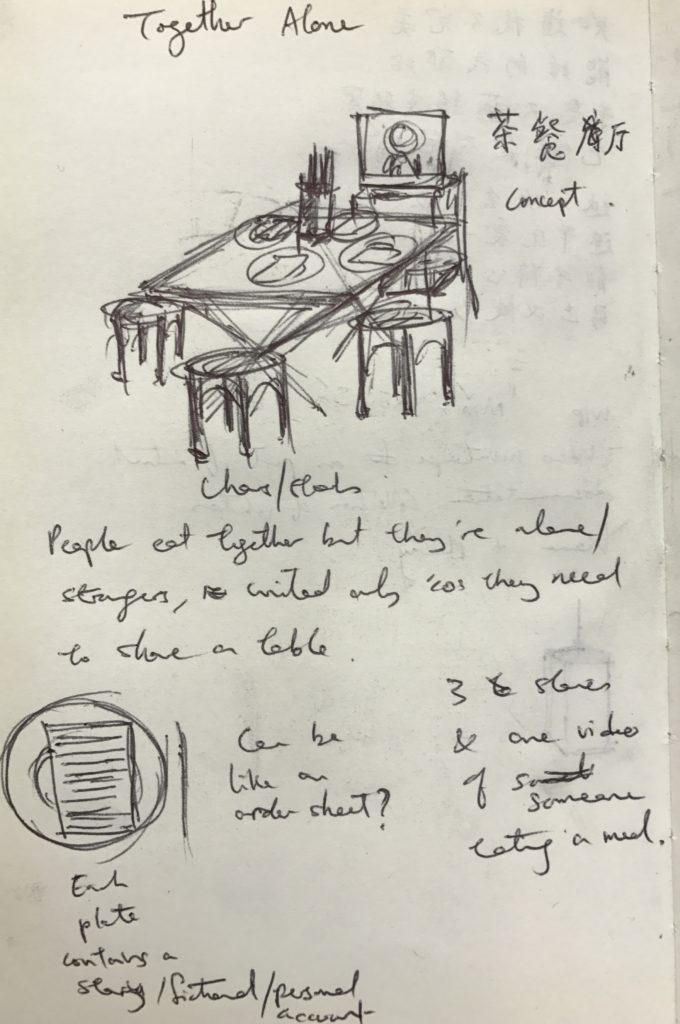 Together Alone
茶餐厅
concept.
Chairs/stools
People eat together but they're alone/
strangers, united only 'cos they need
to share a table.
3 stories
& one video
of
someone
eating a meal.
Can be
like an
order sheet?
Each
plate
contains a
story/fictional/personal
account